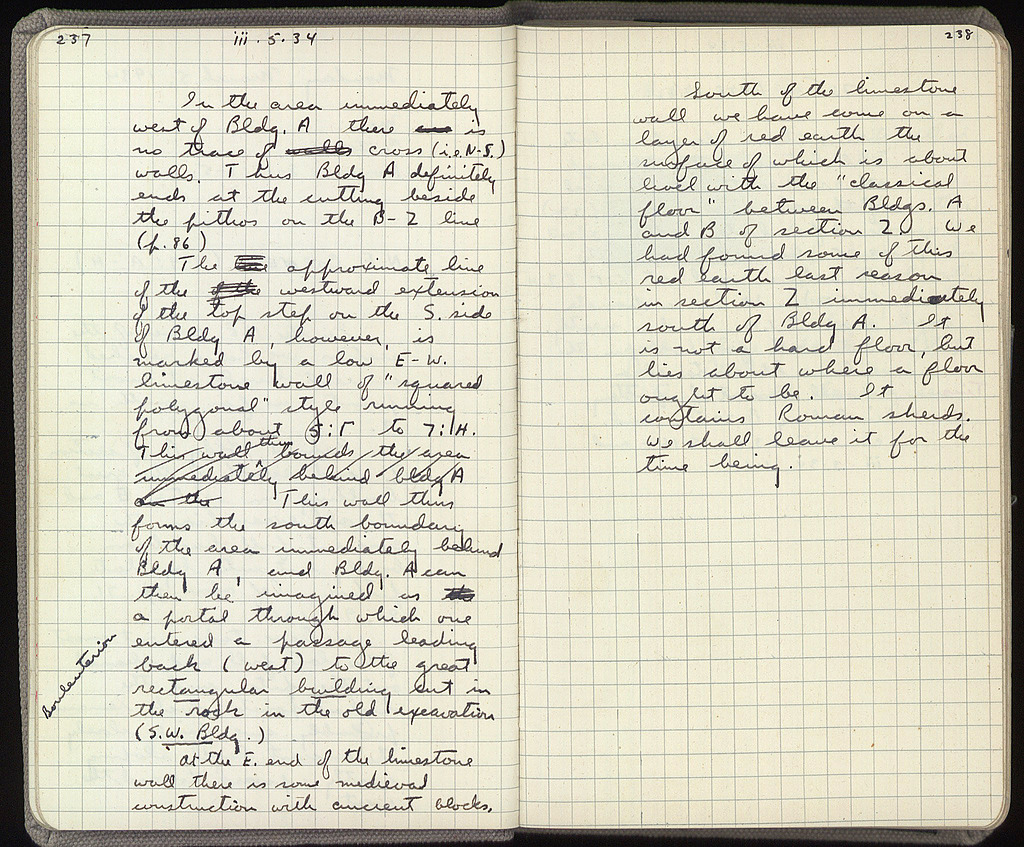 237
iii · 5 · 34
In the area immediately
west of Bldg. A there is
no trace of walls cross (i.e. N-S.)
walls. Thus Bldg A definitely
ends at the cutting beside
the pithos on the B-Z line
(p. 86)
The approximate line
of the of the westward extension
of the top step on the S. side
of Bldg A, however, is
marked by a low E-W.
limestone wall of "squared
polygonal" style running
from about 5:Γ to 7:H.
This wall thus bounds the area
immediately behind bldg A
on the This wall thus
forms the south boundary
of the area immediately behind
Bldg A, and Bldg. A can
then be imagined as the
a portal through which one
entered a passage leading
back (west) to the great
rectangular building cut in
the rock in the old excavation
(S.W. Bldg.)
Bouleuterion
At the E. end of the limestone
wall there is some medieval
construction with ancient blocks.
238
South of the limestone
wall we have come on a
layer of red earth the
surface of which is about
level with the "classical
floor" between Bldgs. A
and B of section Z. We
had found some of this
red earth last season
in section Z immediately
south of Bldg A. It
is not a hard floor, but
lies about where a floor
ought to be. It
contains Roman sherds.
We shall leave it for the
time being.